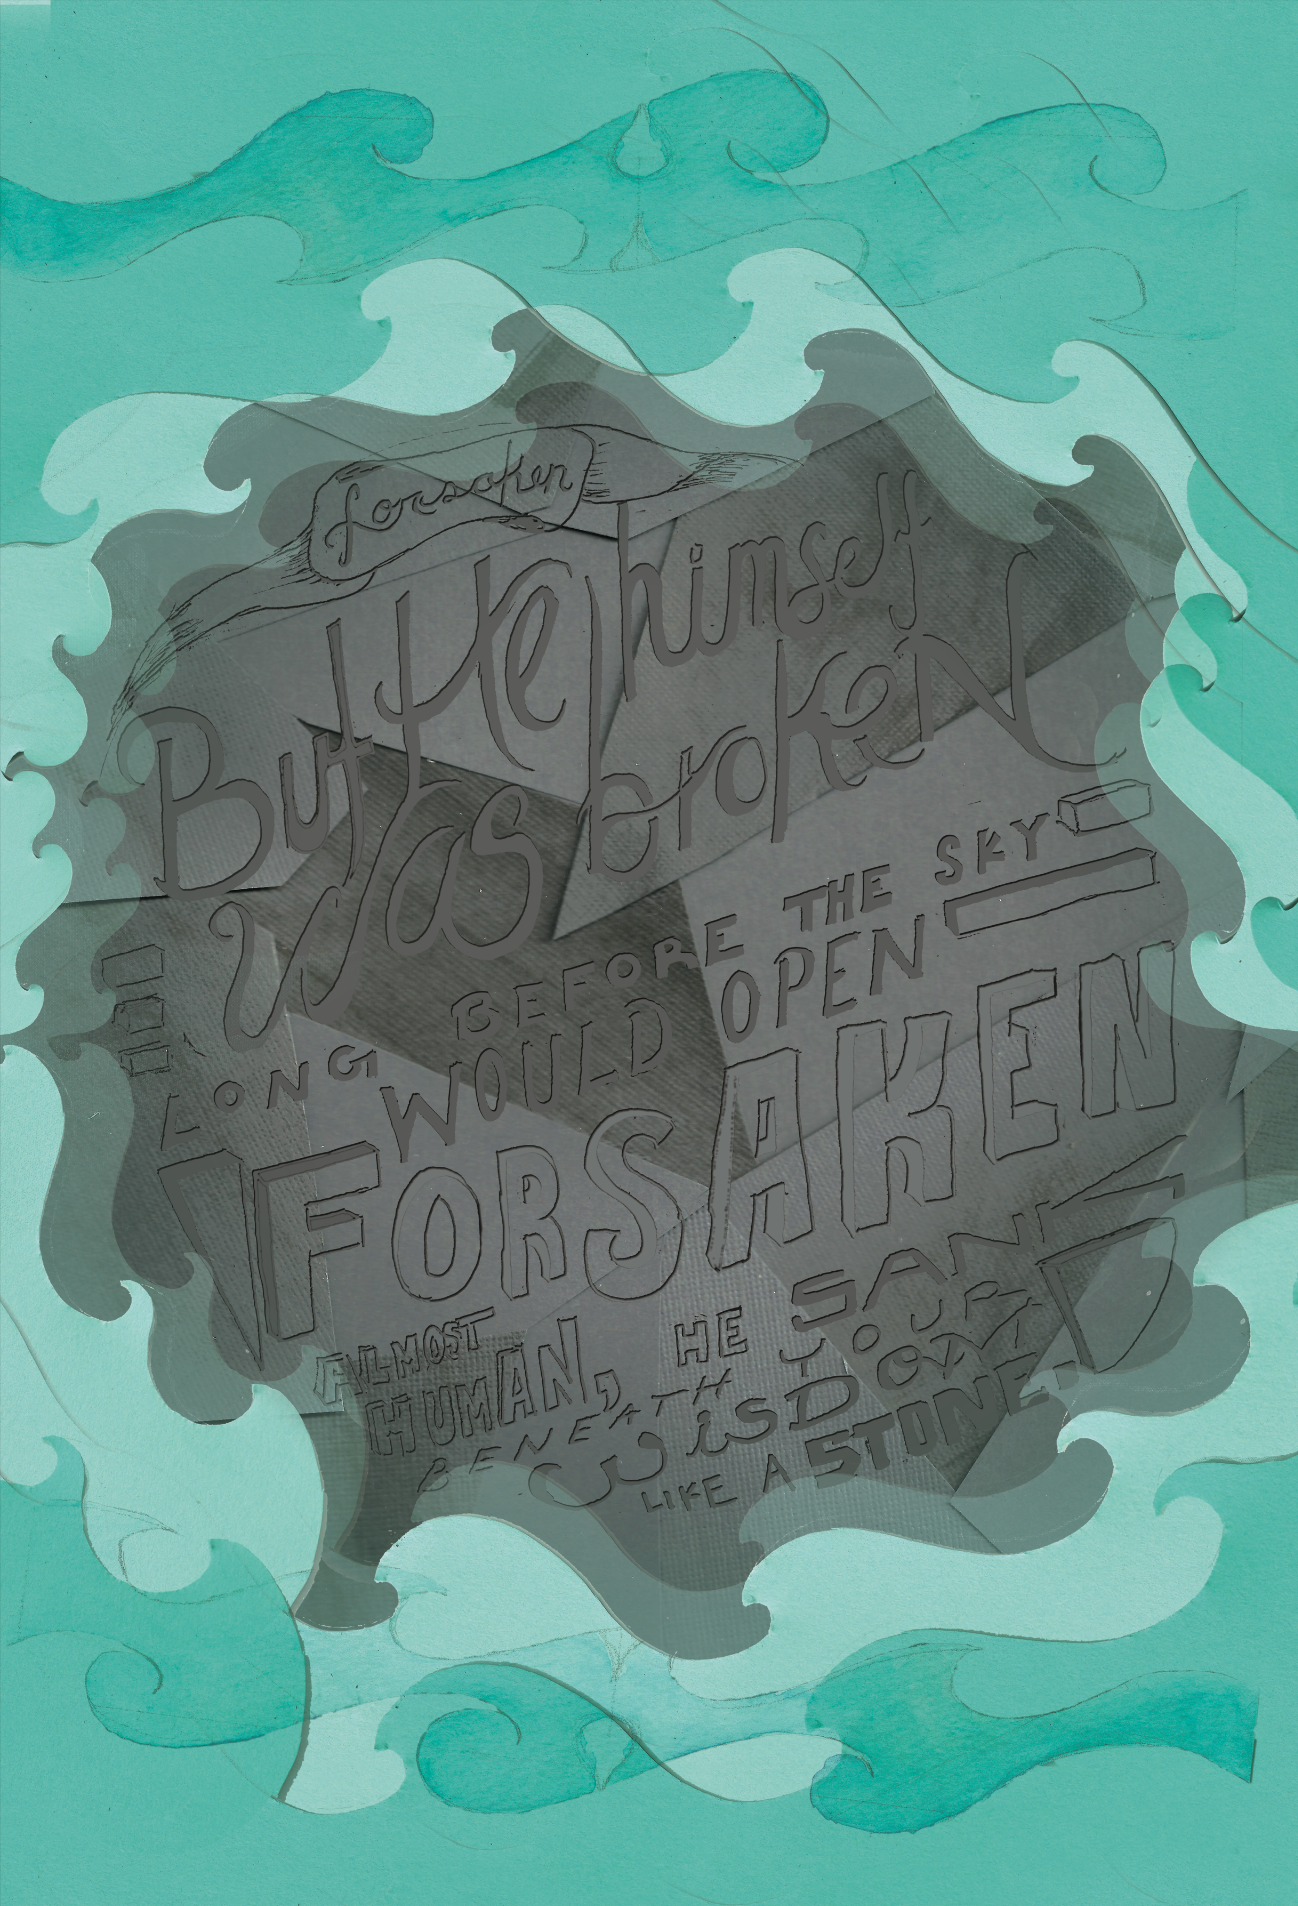 forsaken
But He himself
was broken
LONG BEFORE THE SKY
WOULD OPEN
FORSAKEN
ALMOST
HUMAN, HE SANK
BENEATH YOUR
WISDOM
LIKE A STONE